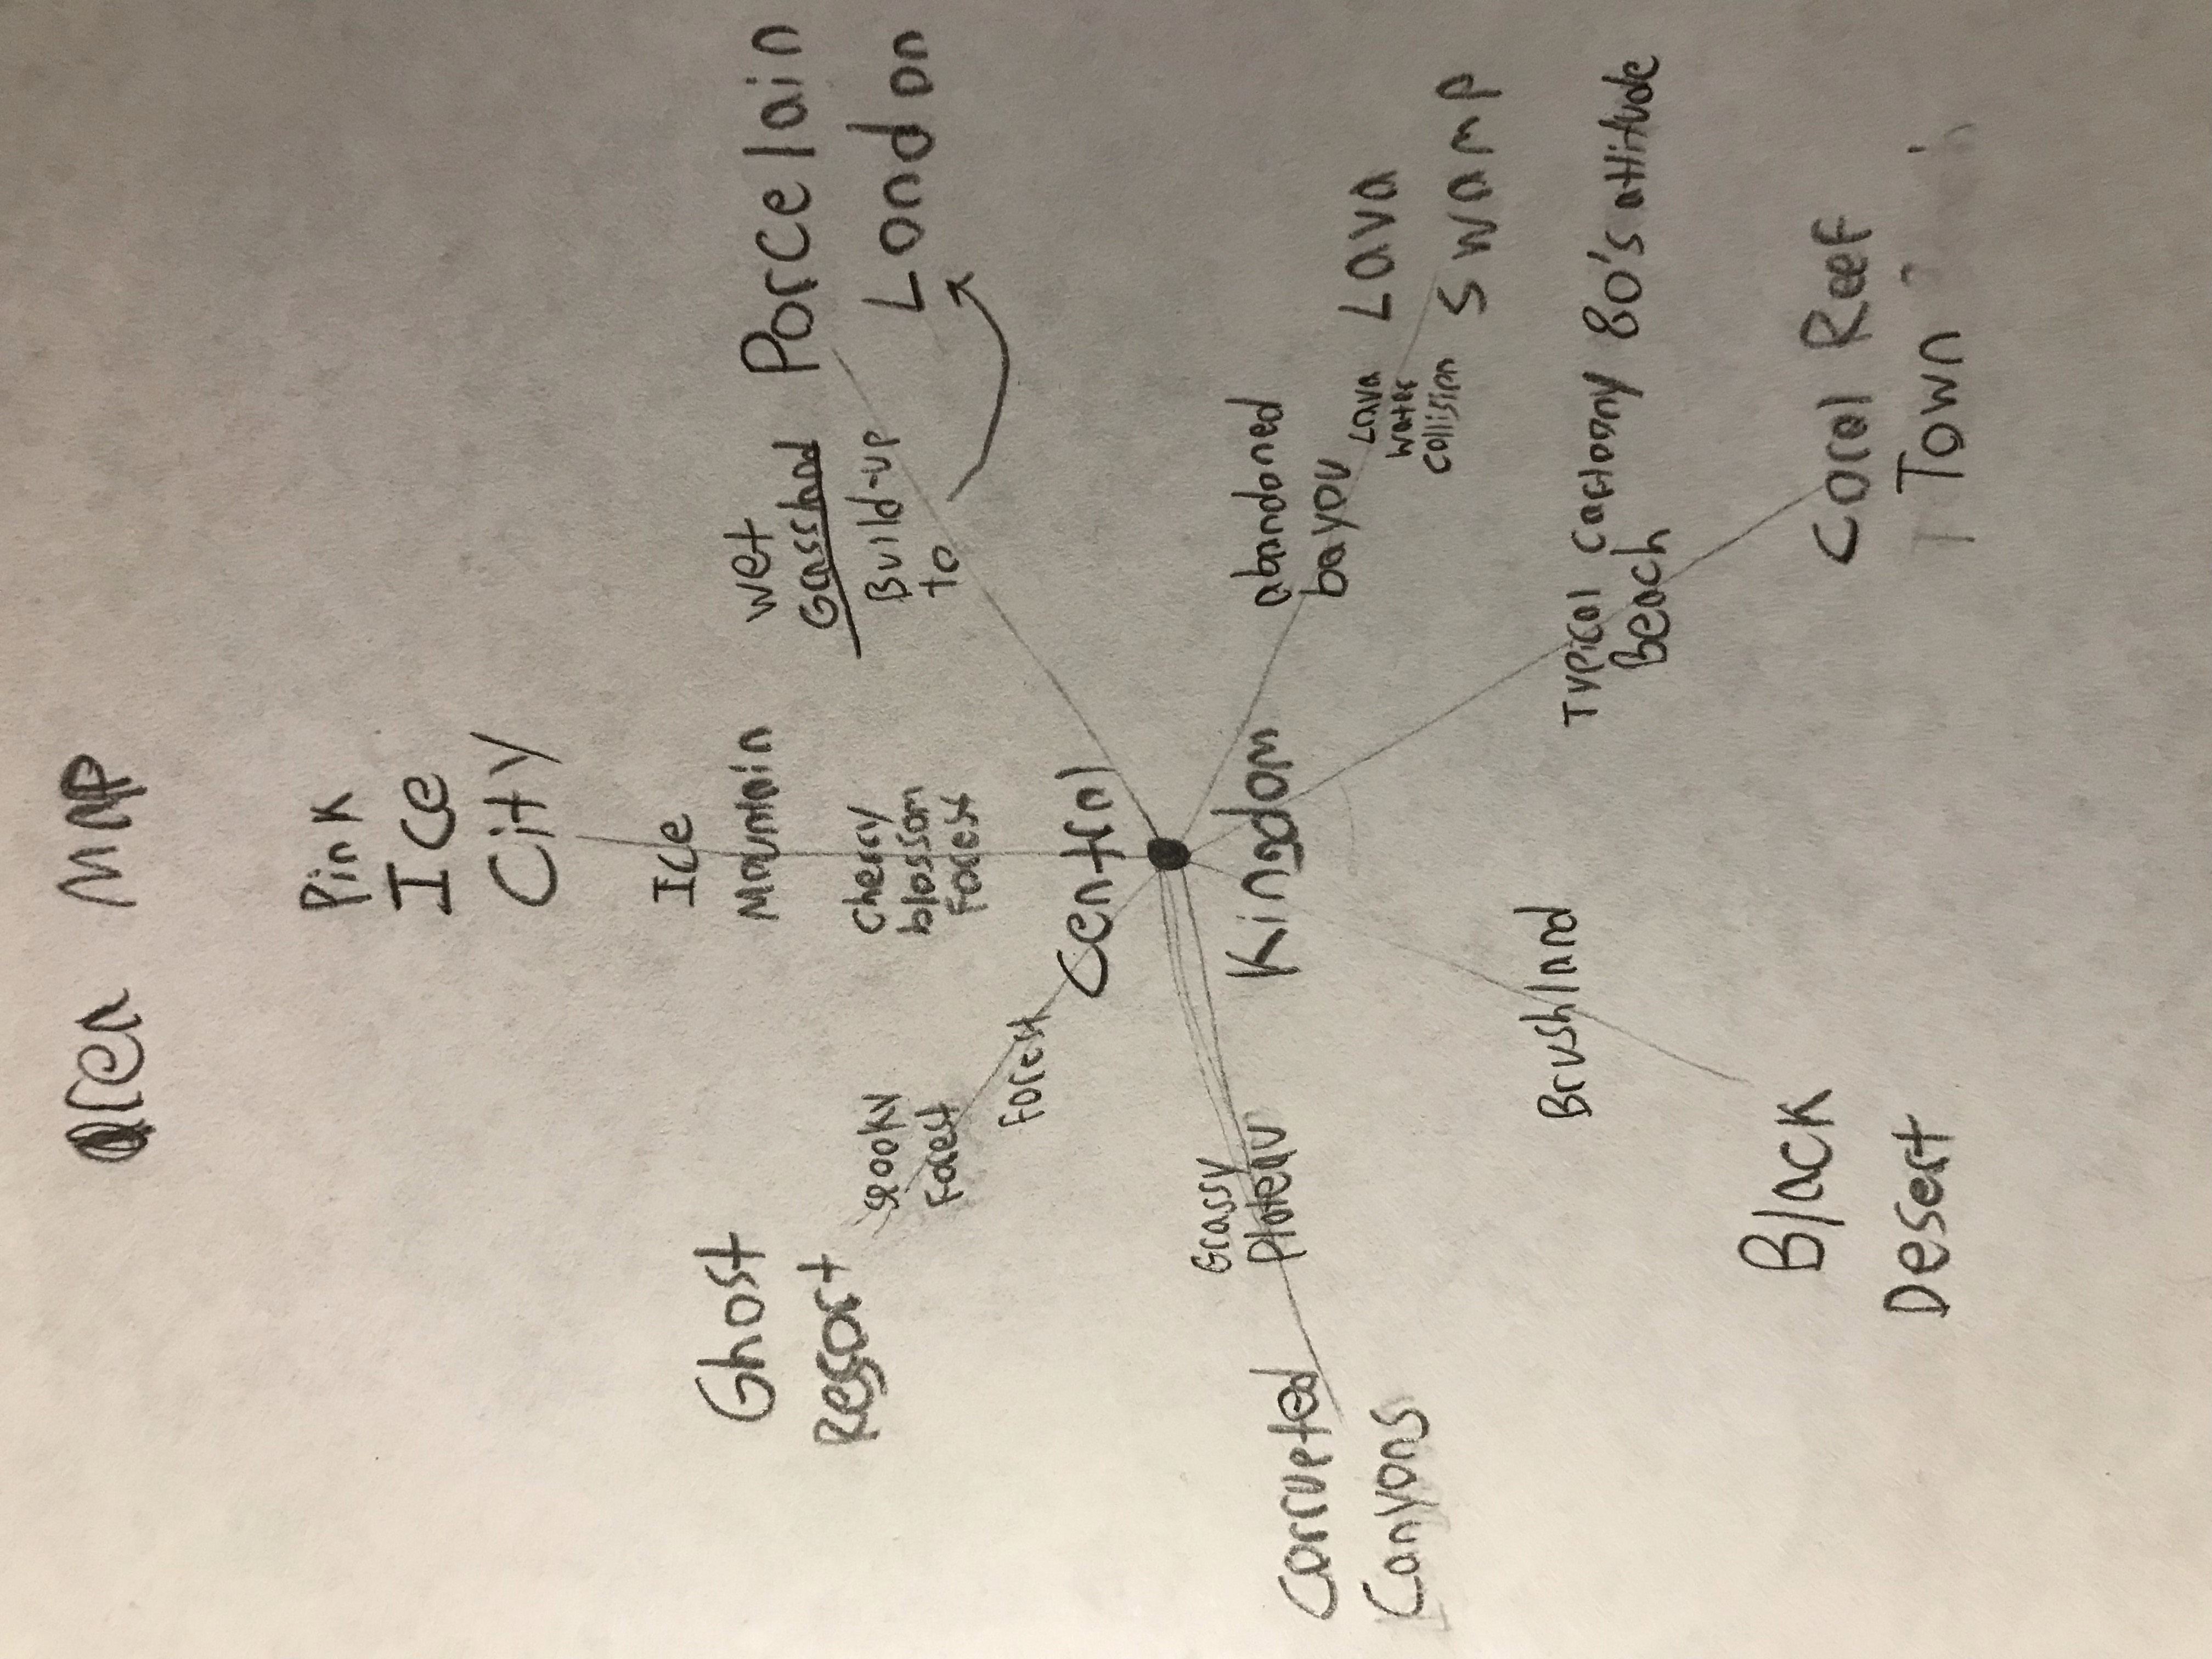 Area Map
Pink
Ice
City
Ice
Mountain
Cherry
blossom
Forest
Ghost
Resort
Spooky
Forest
Forest
wet
Grassland
Build-up
to
Porcelain
London
Central
Kingdom
Grassy
Plateau
Corrupted
Canyons
abandoned
bayou
Lava
water
collision
Lava
Swamp
Brushland
Typical Cartoony 80's attitude
Beach
Black
Desert
Coral Reef
Town